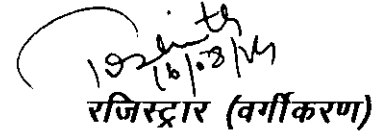 16/03/14
रजिस्ट्रार (वर्गीकरण)